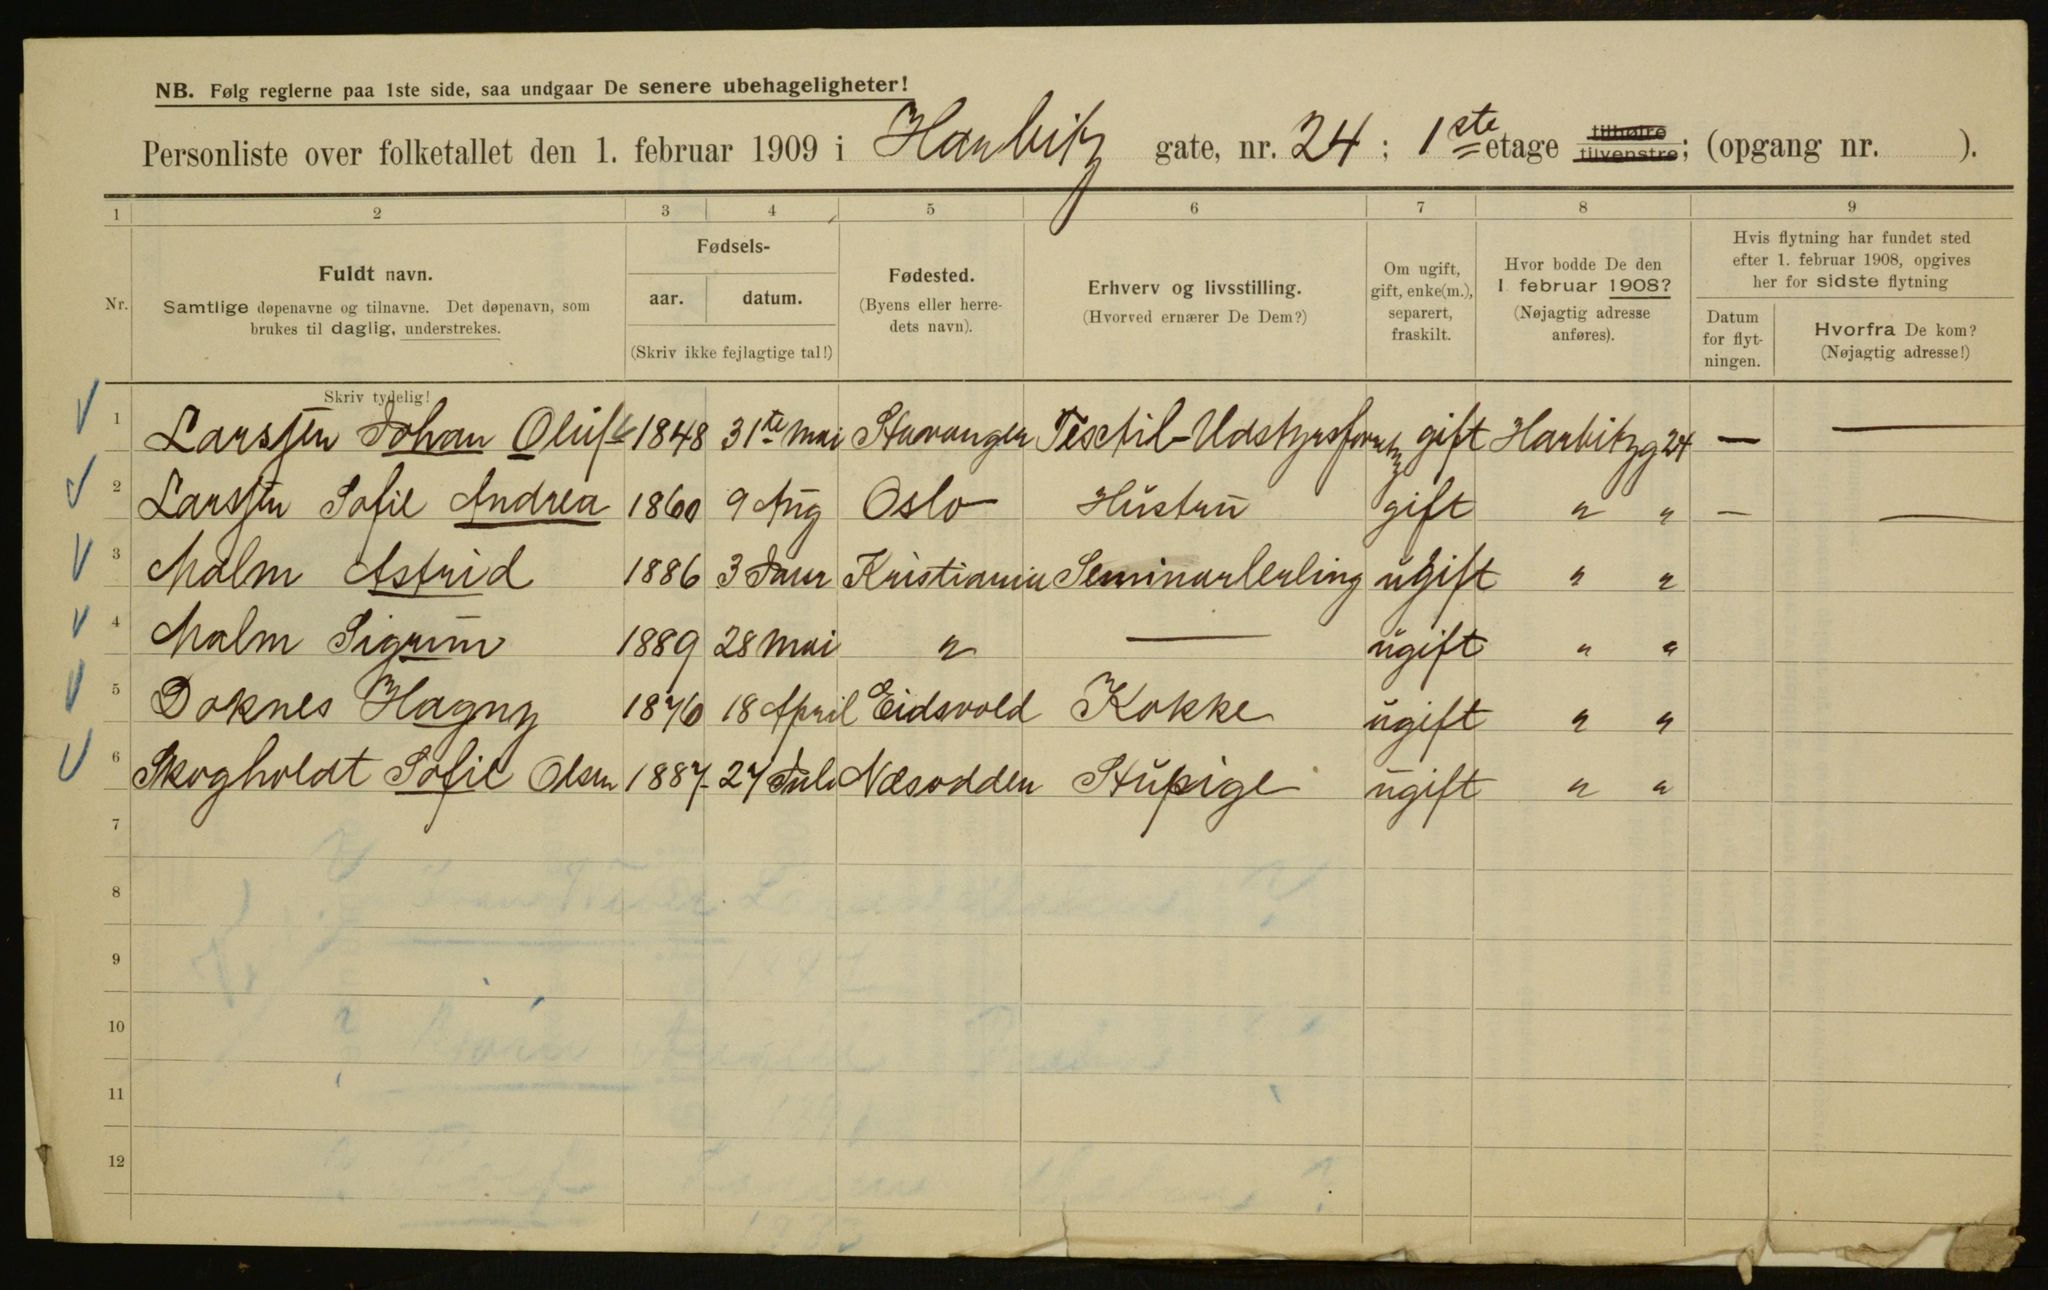 NB. Følg reglerne paa 1ste side, saa undgaar De senere ubehageligheter!
Personliste over folketallet den 1. februar 1909 i Harbitz gate, nr. 24 ; 1ste etage tilhøire tilvenstre; (opgang nr. ).
1 2 3 4 5 6 7 8 9
Nr. Fuldt navn. Samtlige døpenavne og tilnavne. Det døpenavn, som brukes til daglig, understrekes.
Fødsels- aar. datum. (Skriv ikke fejlagtige tal!)
Fødested. (Byens eller herredets navn).
Erhverv og livsstilling. (Hvorved ernærer De Dem?)
Om ugift, gift, enke(m.), separert, fraskilt.
Hvor bodde De den 1. februar 1908? (Nøjagtig adresse anføres).
Hvis flytning har fundet sted efter 1. februar 1908, opgives her for sidste flytning
Datum for flytningen.
Hvorfra De kom? (Nøjagtig adresse!)
Skriv tydelig!
1 Larssen Johan Oluf 1848 31te mai Stavanger Textil-Udstyrsforretng gift Harbitzg 24 — —
2 Larssen Sofie Andrea 1860 9 Aug Oslo Hustru gift " " — —
3 Malm Astrid 1886 3 Janr Kristiania Seminarlerling ugift " "
4 Malm Sigrun 1889 28 mai " — ugift " "
5 Doknes Hagny 1876 18 April Eidsvold Kokke ugift " "
6 Skogholdt Sofie Olsen 1887 27 Juli Næsodden Stupige ugift " "
7
8
9
10
11
12